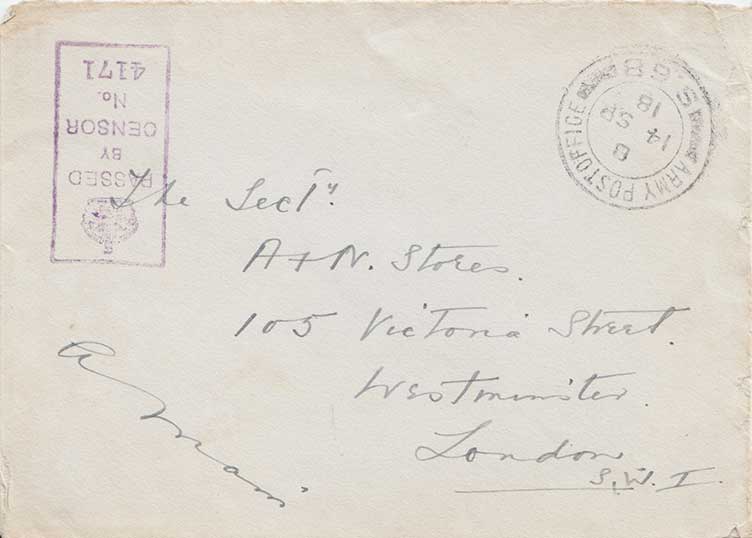 PASSED
BY
CENSOR
No.
4171
ARMY POST OFFICE
S.68
B
14 SP
18
The Secty.
A+N. Stores.
105 Victoria Street.
Westminster.
London
S.W.1.